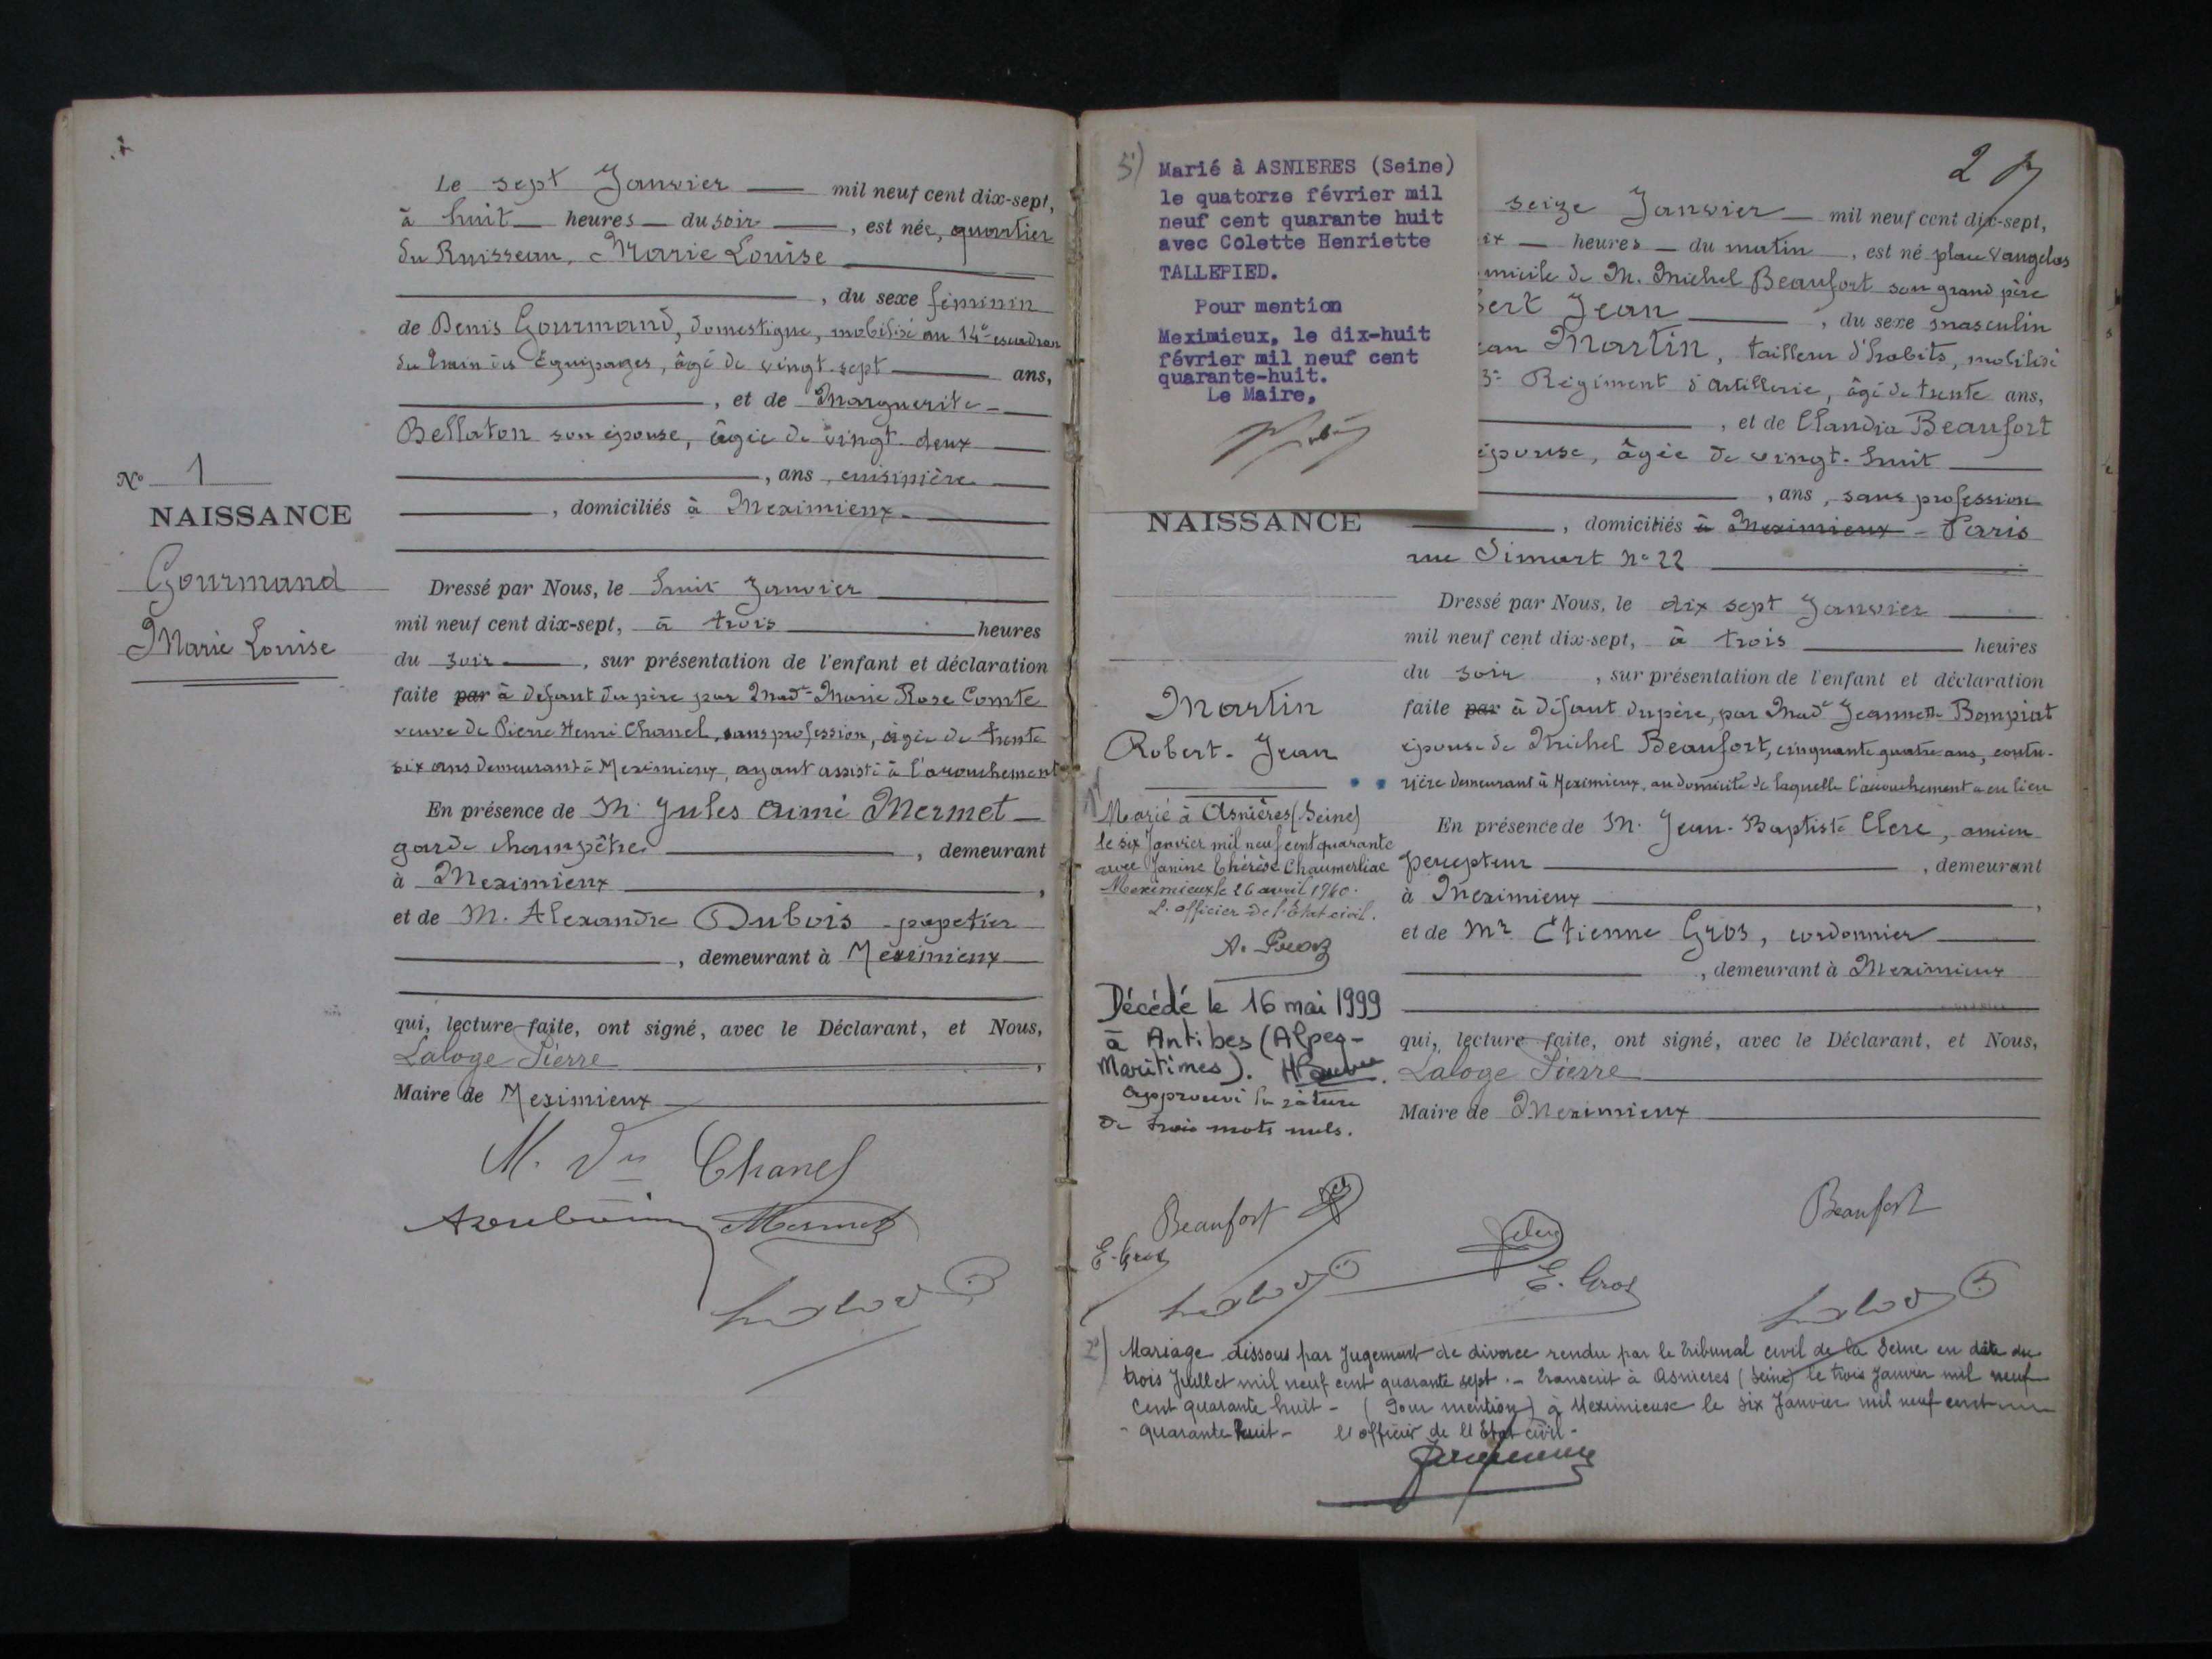 Le sept Janvier mil neuf cent dix-sept,
à huit heures du soir, est née, quartier
du Ruisseau, Marie Louise
, du sexe féminin
de Denis Gourmand, domestique, mobilisé au 14e escadron
du train des Équipages, âgé de vingt-sept ans,
, et de Marguerite
Bellaton son épouse, âgée de vingt-deux
, ans, cuisinière
, domiciliés à Meximieux
No 1
NAISSANCE
Gourmand
Marie Louise
Dressé par Nous, le huit Janvier
mil neuf cent dix-sept, à trois heures
du soir, sur présentation de l'enfant et déclaration
faite par à défaut du père par Made Marie Rose Comte
veuve de Pierre Henri Chanel, sans profession, âgée de trente
six ans demeurant à Meximieux, ayant assisté à l'accouchement
En présence de M. Jules Aimé Mermet
garde champêtre, demeurant
à Meximieux,
et de M. Alexandre Dubois papetier
, demeurant à Meximieux
qui, lecture faite, ont signé, avec le Déclarant, et Nous,
Laloge Pierre,
Maire de Meximieux
M. Vve Chanel
Mermet
3°) Marié à ASNIERES (Seine)
le quatorze février mil
neuf cent quarante huit
avec Colette Henriette
TALLEPIED.
Pour mention
Meximieux, le dix-huit
février mil neuf cent
quarante-huit.
Le Maire,
2
seize Janvier mil neuf cent dix-sept,
ix heures du matin, est né place Vaugelas
micile de M. Michel Beaufort son grand père
bert Jean, du sexe masculin
ean Martin, tailleur d'habits, mobilisé
3e Régiment d'Artillerie, âgé de trente ans,
, et de Claudia Beaufort
épouse, âgée de vingt-huit
, ans, sans profession
, domiciliés à Meximieux - Paris
rue Simart no 22
NAISSANCE
Martin
Robert-Jean
Dressé par Nous, le dix sept Janvier
mil neuf cent dix-sept, à trois heures
du soir, sur présentation de l'enfant et déclaration
faite par à défaut du père, par Made Jeannette Bompiat
épouse de Michel Beaufort, cinquante quatre ans, coutu-
rière demeurant à Meximieux, au domicile de laquelle l'accouchement a eu lieu
En présence de M. Jean-Baptiste Clerc, ancien
percepteur, demeurant
à Meximieux,
et de Mr Etienne Gros, cordonnier
, demeurant à Meximieux
qui, lecture faite, ont signé, avec le Déclarant, et Nous,
Laloge Pierre
Maire de Meximieux
1°) Marié à Asnières (Seine)
le six Janvier mil neuf cent quarante
avec Janine Thérèse Chaumerliac
Meximieux le 26 avril 1940.
L'officier de l'Etat civil.
Décédé le 16 mai 1999
à Antibes (Alpes-
Maritimes).
Approuvé la rature
de trois mots nuls.
Beaufort
E. Gros
E. Gros
Beaufort
2°) Mariage dissous par Jugement de divorce rendu par le Tribunal civil de la Seine en date du
trois Juillet mil neuf cent quarante sept. - Transcrit à Asnieres (Seine) le trois Janvier mil neuf
cent quarante huit - (Pour mention) à Meximieux le six Janvier mil neuf cent
- quarante huit - l'officier de l'Etat civil -